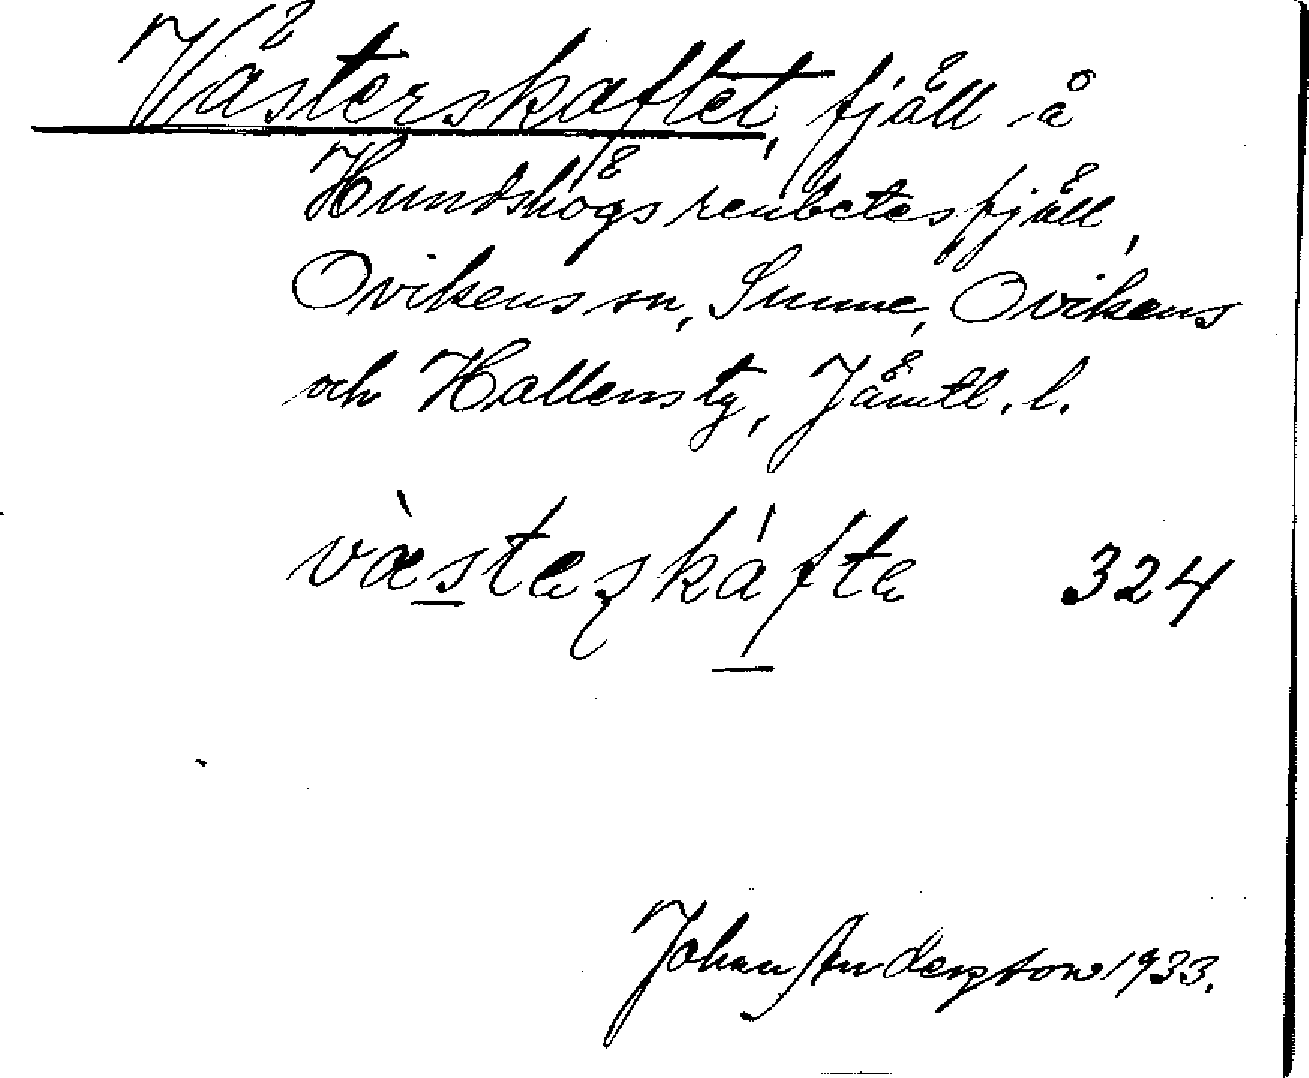 Västerskaftet, fjäll å
Hundshögs renbetesfjäll,
Ovikens sn, Sunne, Ovikens
och Hallens tg, Jämtl. l.
væ̀steʂkáfte 324
Johan Anderzon 1933.